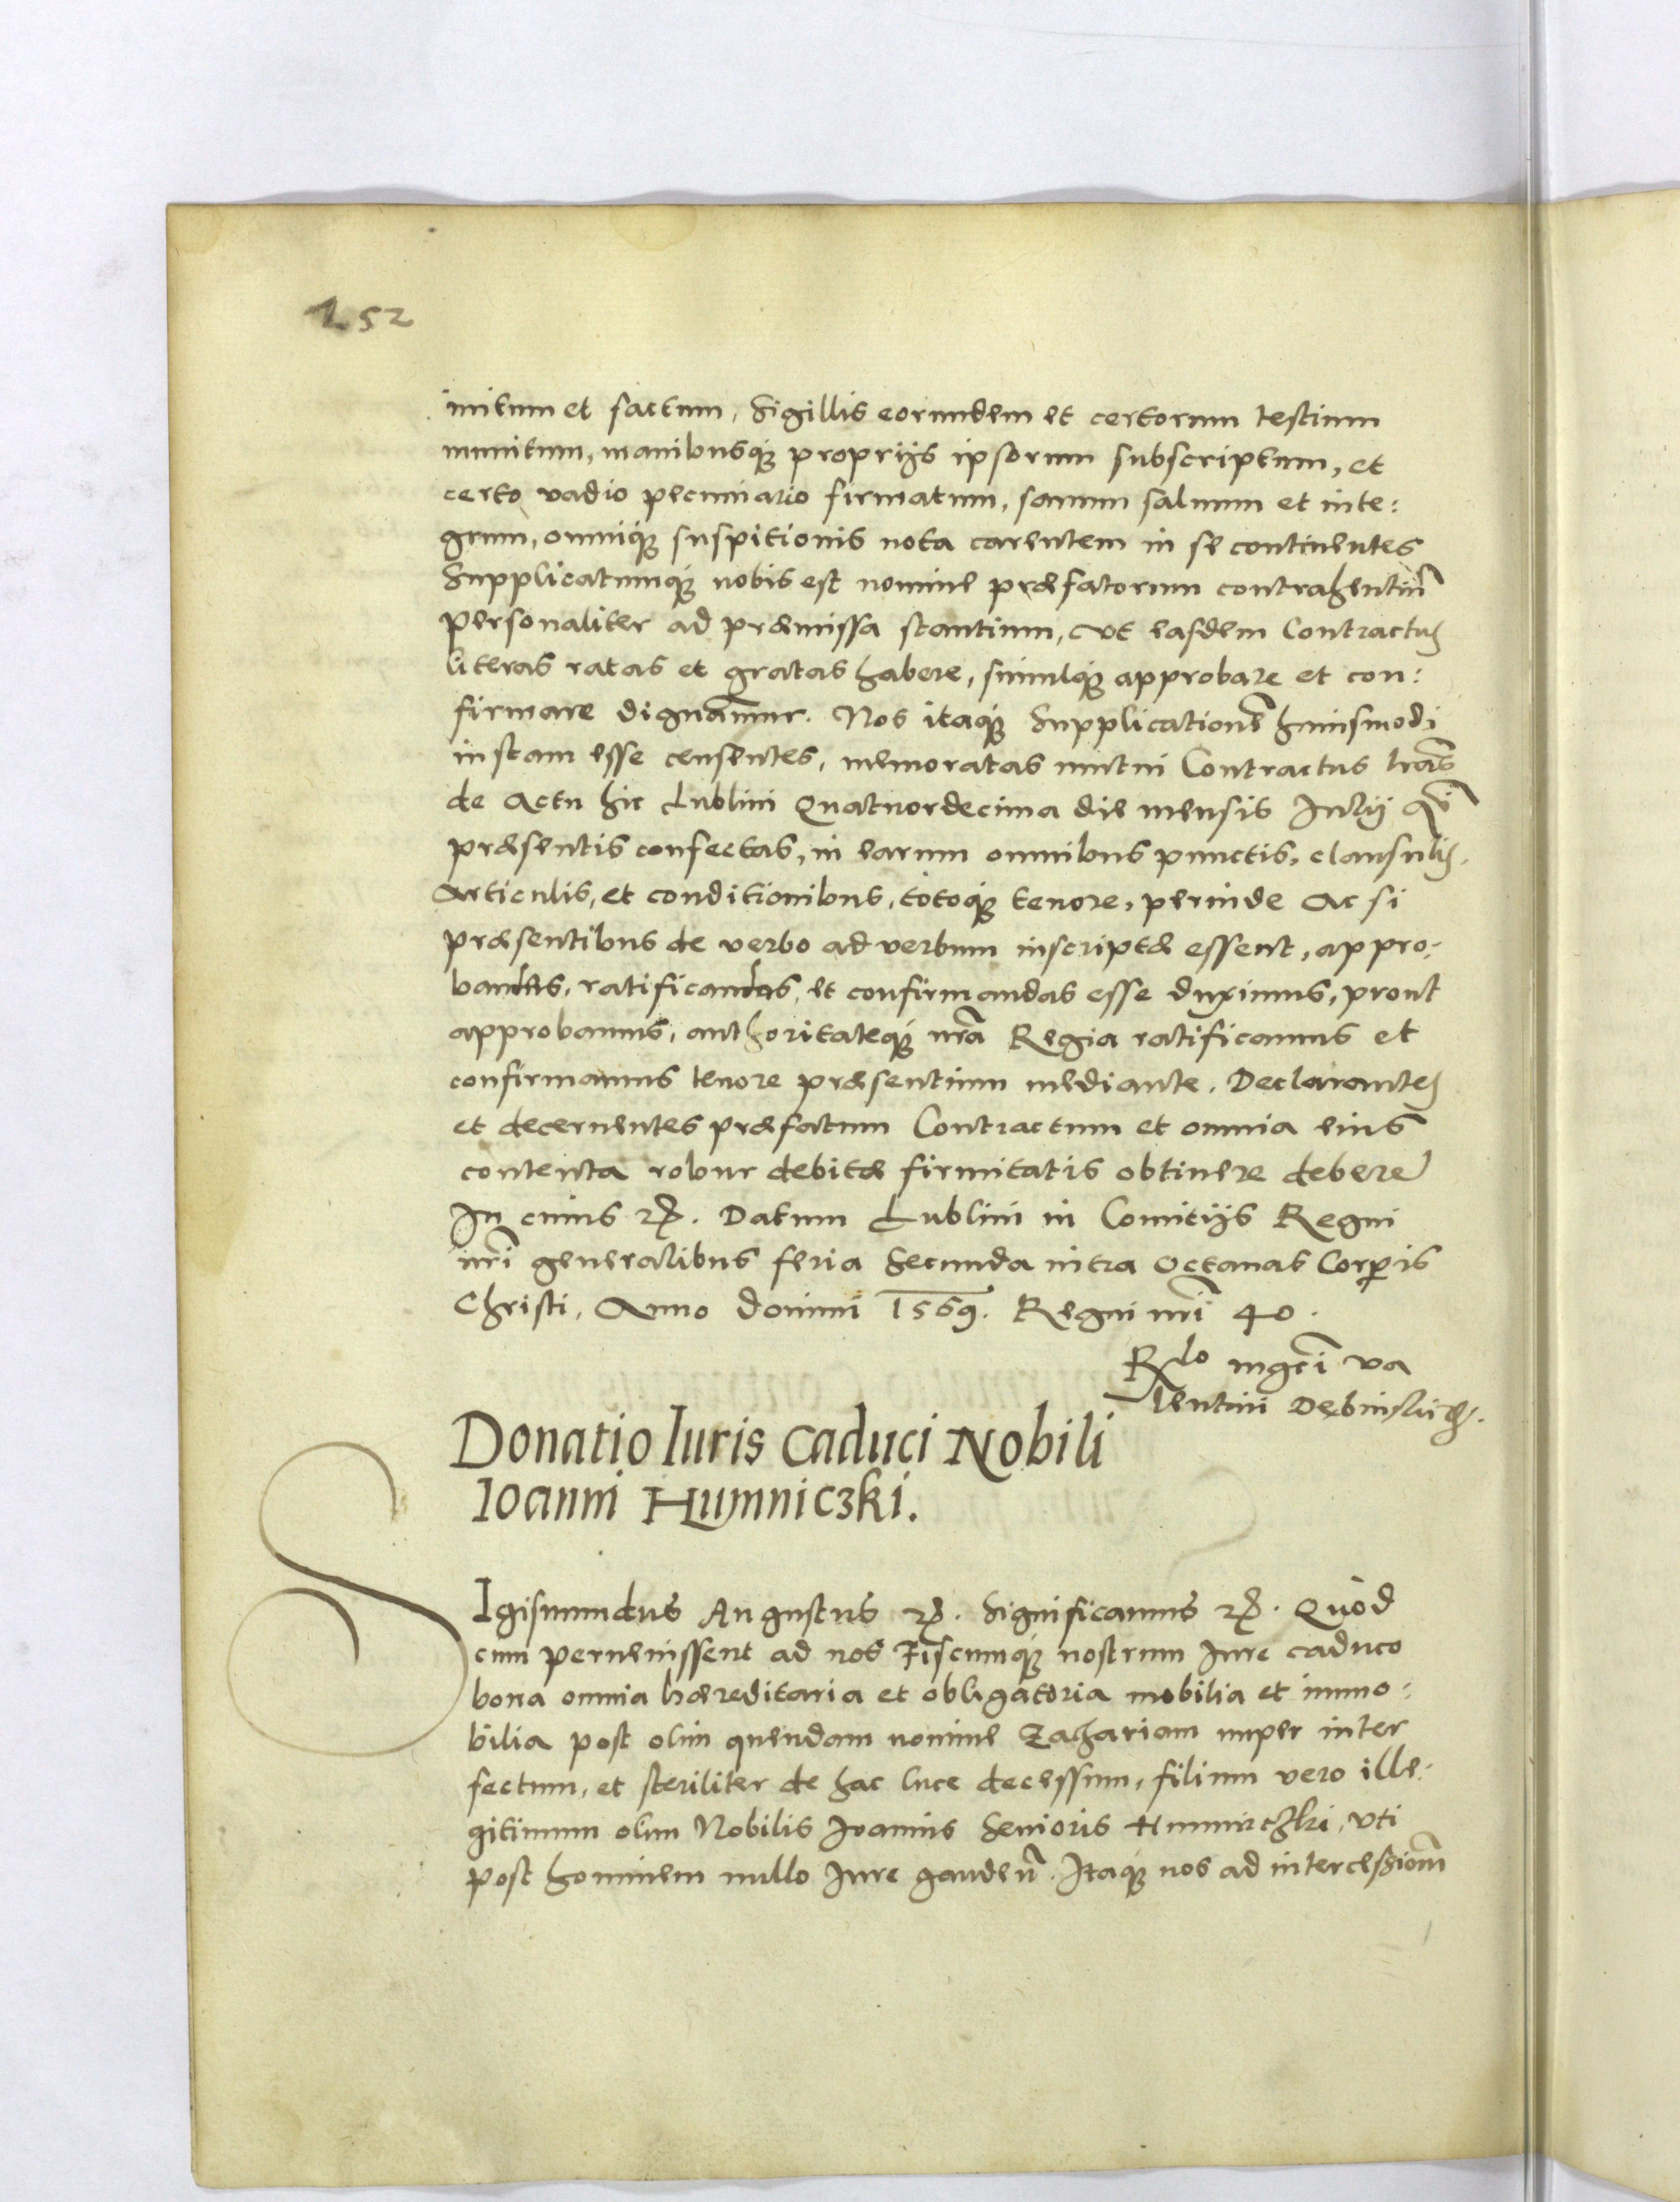 252
initum et factum, Sigillis eorundem et certorum testium
munitum, manibusq́ꝫ proprijs ipsorum subscriptum, et
certo vadio pecuniario firmatum, sanum saluum et inte:
grum, omniq́ꝫ suspitionis nota carentem in se continentes
Supplicatumq́ꝫ nobis est nomine præfatorum contrahentiũ
personaliter ad præmissa stantium, vt easdem Contractus
literas ratas et gratas habere, simulq́ꝫ approbare et con:
firmare dignaremur. Nos itaq́ꝫ Supplicationẽ huiusmodi
iustam esse censentes, memoratas mutui Contractus lr̃as
de Actu hic Lublini Quatuordecima die mensis Iulij
præsentis confectas, in earum omnibus punctis, clausulis,
Articulis, et conditionibus, totoq́ꝫ tenore, perinde Ac si
præsentibus de verbo ad verbum inscriptæ essent, appro:
bandas, ratificandas, et confirmandas esse duximus, prout
approbamus, authoritateq́ꝫ nr̃a Regia ratificamus et
confirmamus tenore præsentium mediante. Declarantes
et decernentes præfatum Contractum et omnia eius
contenta robur debitæ firmitatis obtinere debere
In cuius rẽ. Datum Lublini in Comitijs Regni
nr̃i generalibus feria Secunda intra Octauas Corp̃is
Christi, Anno Domini 1569. Regni nr̃i 40.
R̃lo mgc̃i Va
lentini Dębinski &.
Donatio Iuris Caduci Nobili
Ioanni Humniczki.
SIgismundus Augustus rẽ. Significamus rẽ. Quòd
cum peruenissent ad nos Fiscumq́ꝫ nostrum Iure caduco
bona omnia hæreditaria et obligatoria mobilia et immo:
bilia post olim quendam nomine Zachariam nuper inter
fectum, et steriliter de hac luce decessum, filium vero ille:
gitimum olim Nobilis Ioannis Senioris Humniczki, vti
post hominem nullo Iure gauden̄. Itaq́ꝫ nos ad intercessionẽ